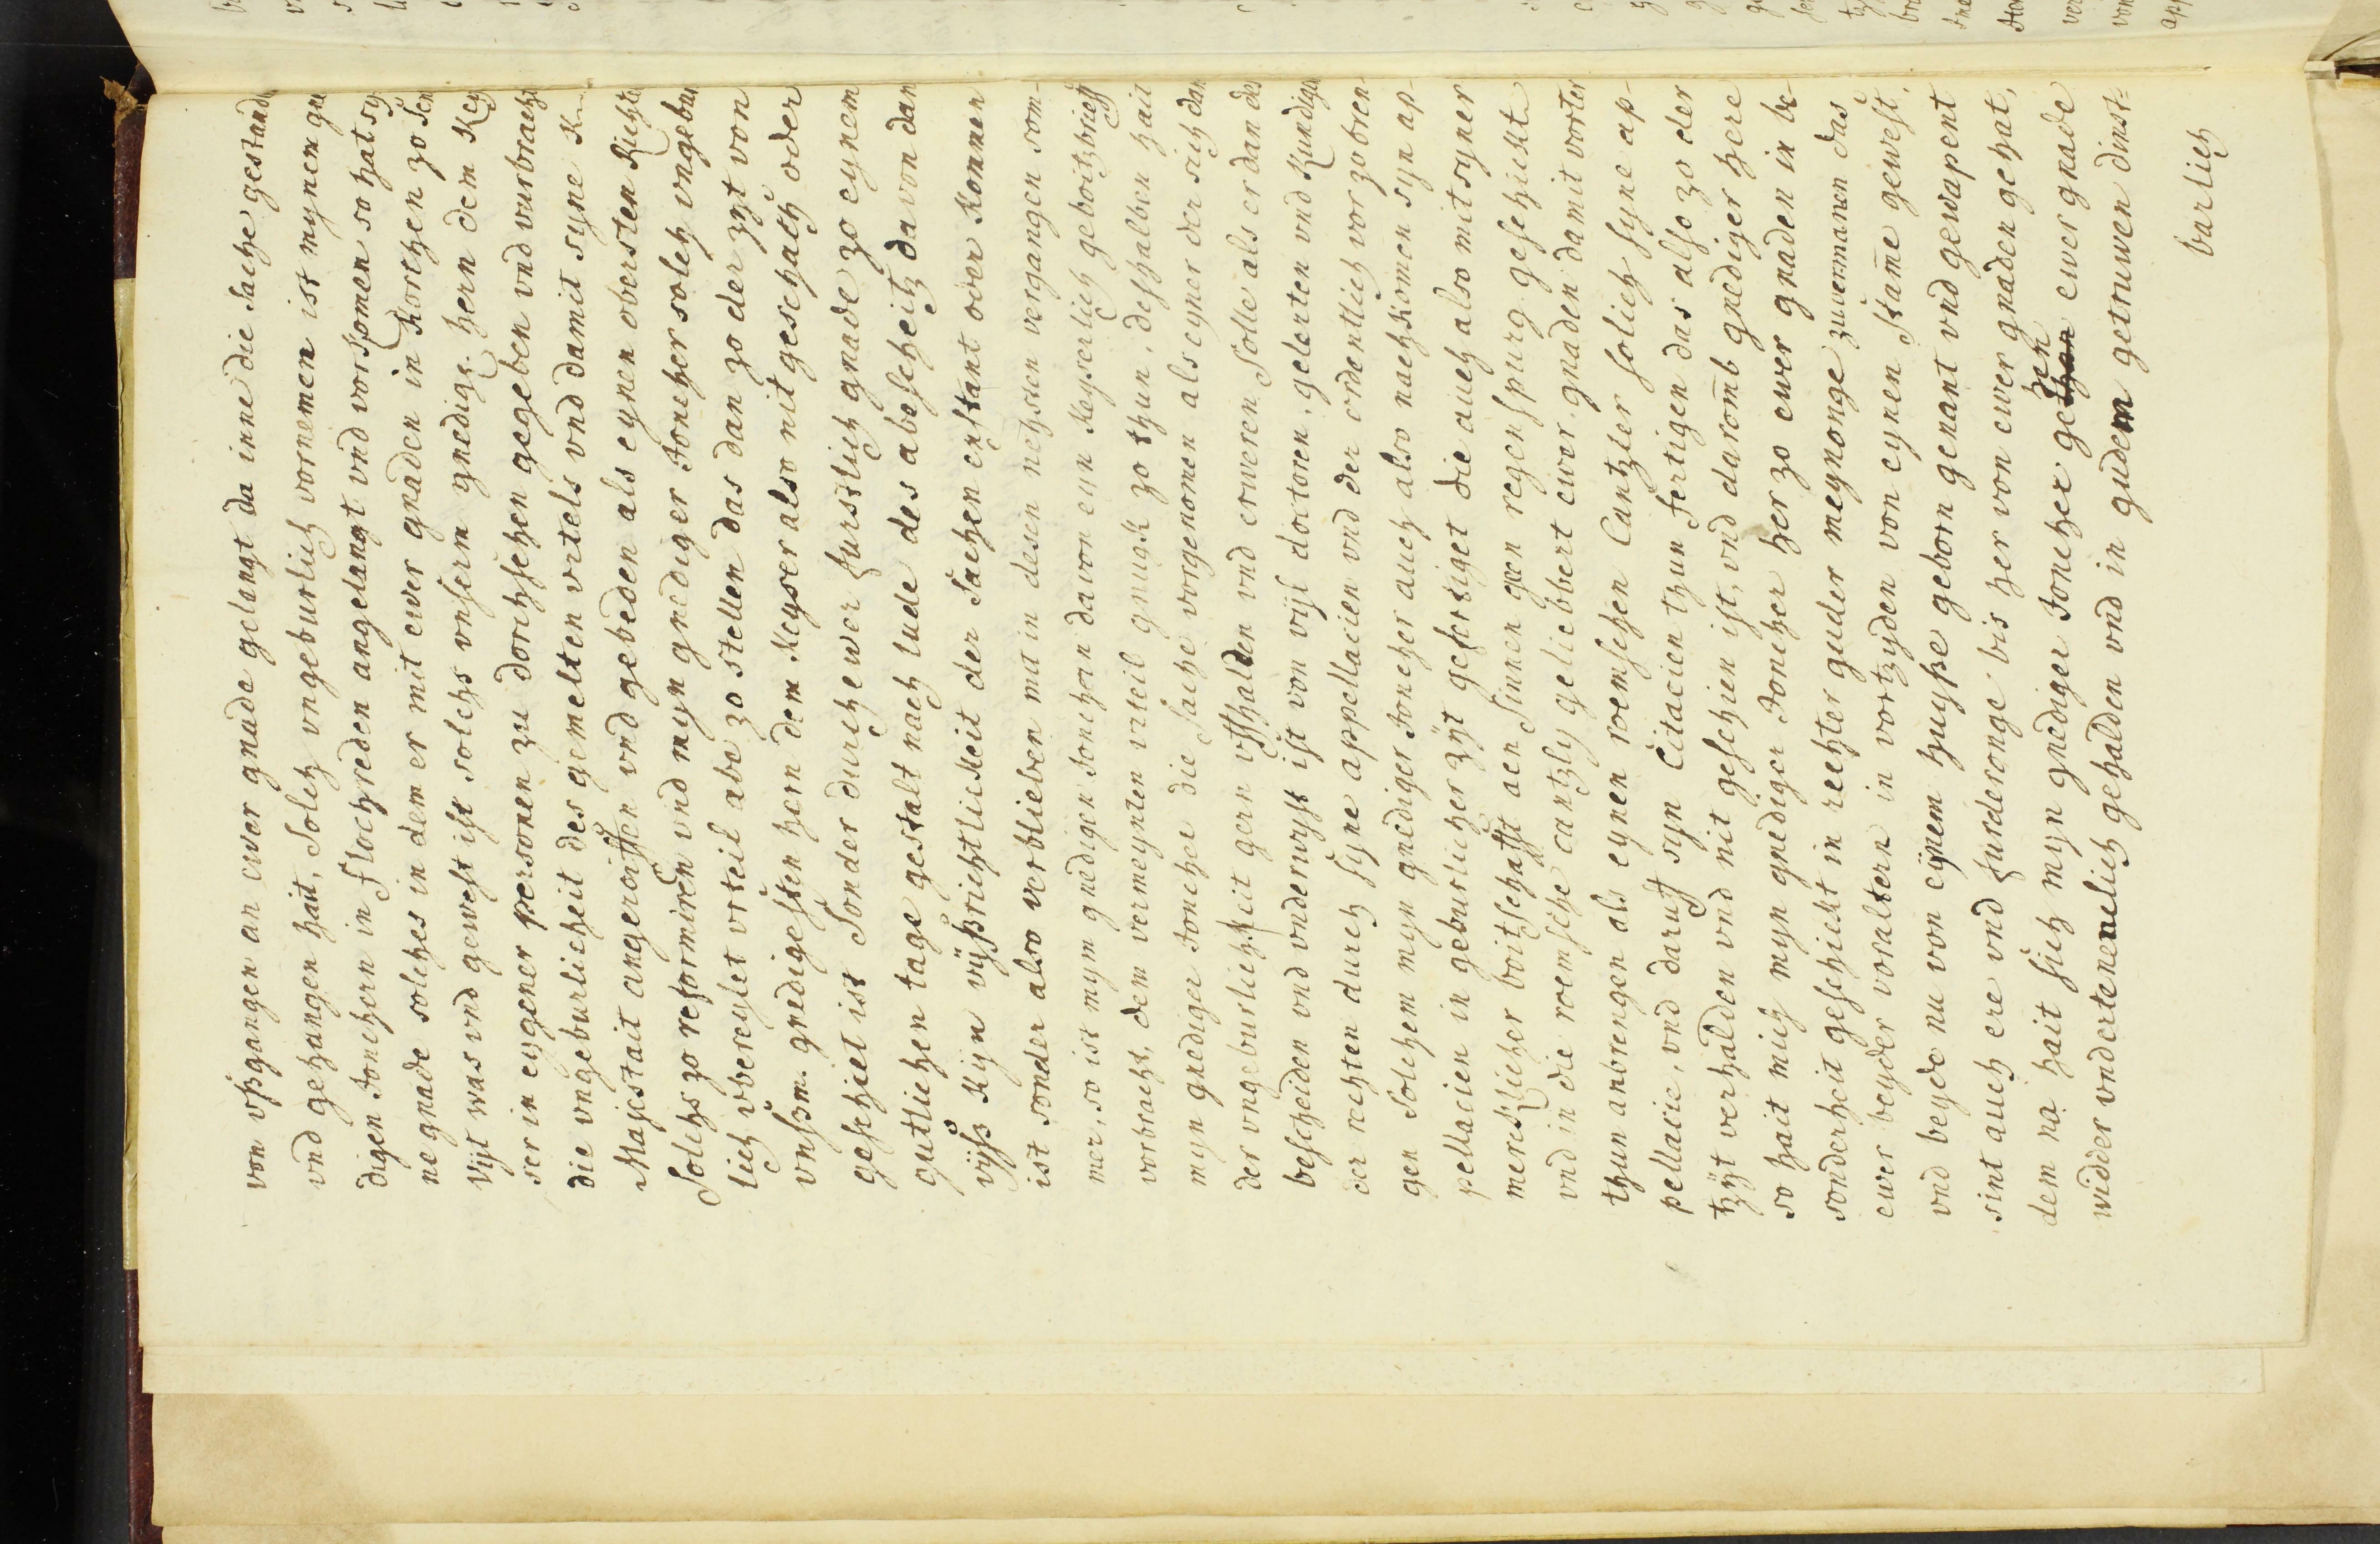 von vßgangen an ewer gnade gelangt da inne die Sache gestand
vnd gehangen hait, Solich vngeburlich vornemen ist mynem gne
digen Jonchern in flochreden angelangt vnd vorkomen so hat sy
ne gnade solches in dem er mit ewer gnaden in Korthen zo
vijt was vnd gewest ist solchs vnsern gnedigen hern dem Key
ser in eygener personen zu dorchsehen gegeben vnd vurbracht
die vngeburlicheit des gemelten vrtels vnd damit syne K
Majestait angeroiffen vnd gebeden als eynen obersten Richte
Solichs zo reforminen vnd myn gnediger Joncher solich vngebur
lich vbereylet vrteil abe zo stellen das dan zo der zyt von
vnßm. gnedigesten hern dem Keyser also nit geschach oder
geschiet ist Sonder durch ewer furstlich gnade zo eynem
gutlichen tage gestalt nach lude des abescheitz da von dan
vyß Kyn vyßrichtlickeit der Sachen enstant over Kommen
ist sonder also verblieben mit in desen nehsten vergangen som-
mer, so ist mym gnedigen Jonchern da von eyn Keyserlich gebottzbrieff
vorbracht, dem vermeynten vrteil gnugk zo thun, deßhalben hait
myn gnediger Joncher die Sache vorgenomen als eyner der sich dan
der vngeburlichkeit gern vffhalden vnd erweren Solle als er dan des
bescheiden vnd vnderwyßt ist von vijl doctoren, gelerten vnd Kundigen
der rechten durch syne appellacien vnd der ordentlich vor zo bren-
gen Solchem myn gnediger Joncher auch also nachkomen syn ap-
pellacien in geburlicher zijt gefertiget die auch also mit syner
mercklicher boitschafft den Sinnen gen regenspurg geschickt
vnd in die roemsche cantzly geliebbert ewer gnaden damit vorter
thun anbrengen als eynen roemschen Cantzler solich syne ap-
pellacie, vnd daruff syn Citacien thun fertigen das also zo der
tzijt verhalden vnd nit geschien ist, vnd daromb gnediger here
so hait mich myn gnediger Joncher her zo ewer gnaden in be-
sonderheit geschickt in rechter guder meynonge zu vermanen das
ewer beyder voraltern in vortzyden von eynen Stam̄e gewest,
vnd beyde nu von eynem huyße geborn genant vnd gewapent
sint auch ere vnd furderonge bis her von ewer gnaden gehat,
dem na hait sich myn gnediger Joncher gethan hen ewer gnade
widder vndertenenclich gehalden vnd in gudem getruwen dinst-
barlich